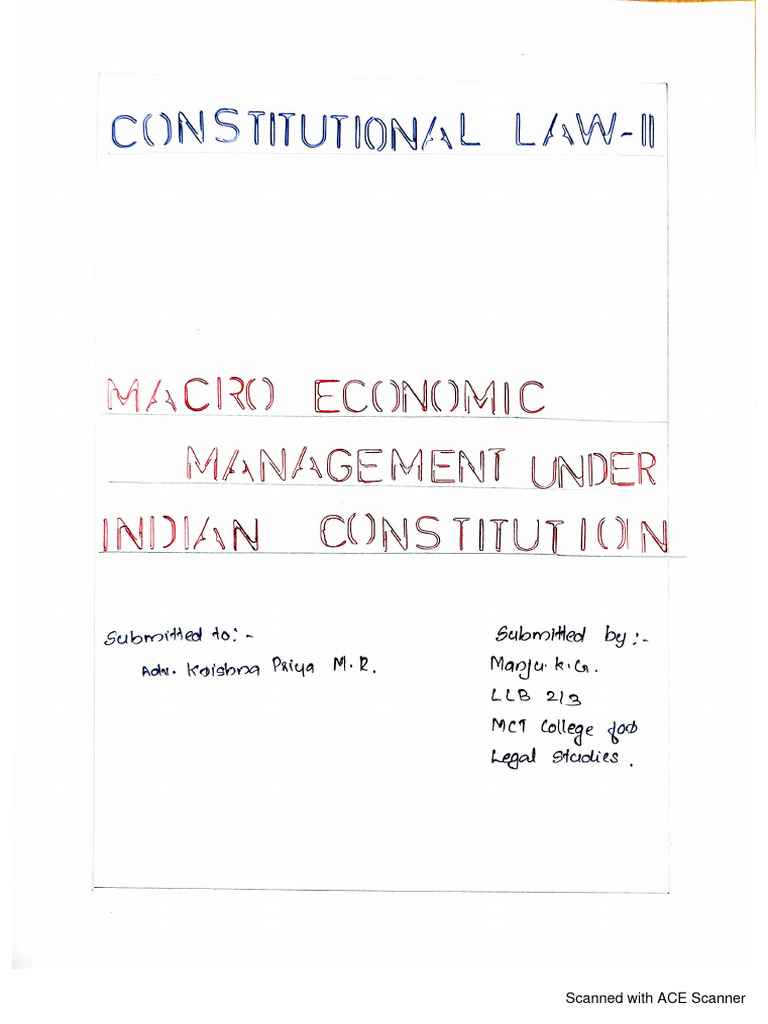 CONSTITUTIONAL LAW-II
MACRO ECONOMIC
MANAGEMENT UNDER
INDIAN CONSTITUTION
Submitted to:-
Adv. Krishna Priya M.R.
Submitted by:-
Manju.K.G.
LLB 2/3
MCT College for
Legal Studies.
Scanned with ACE Scanner